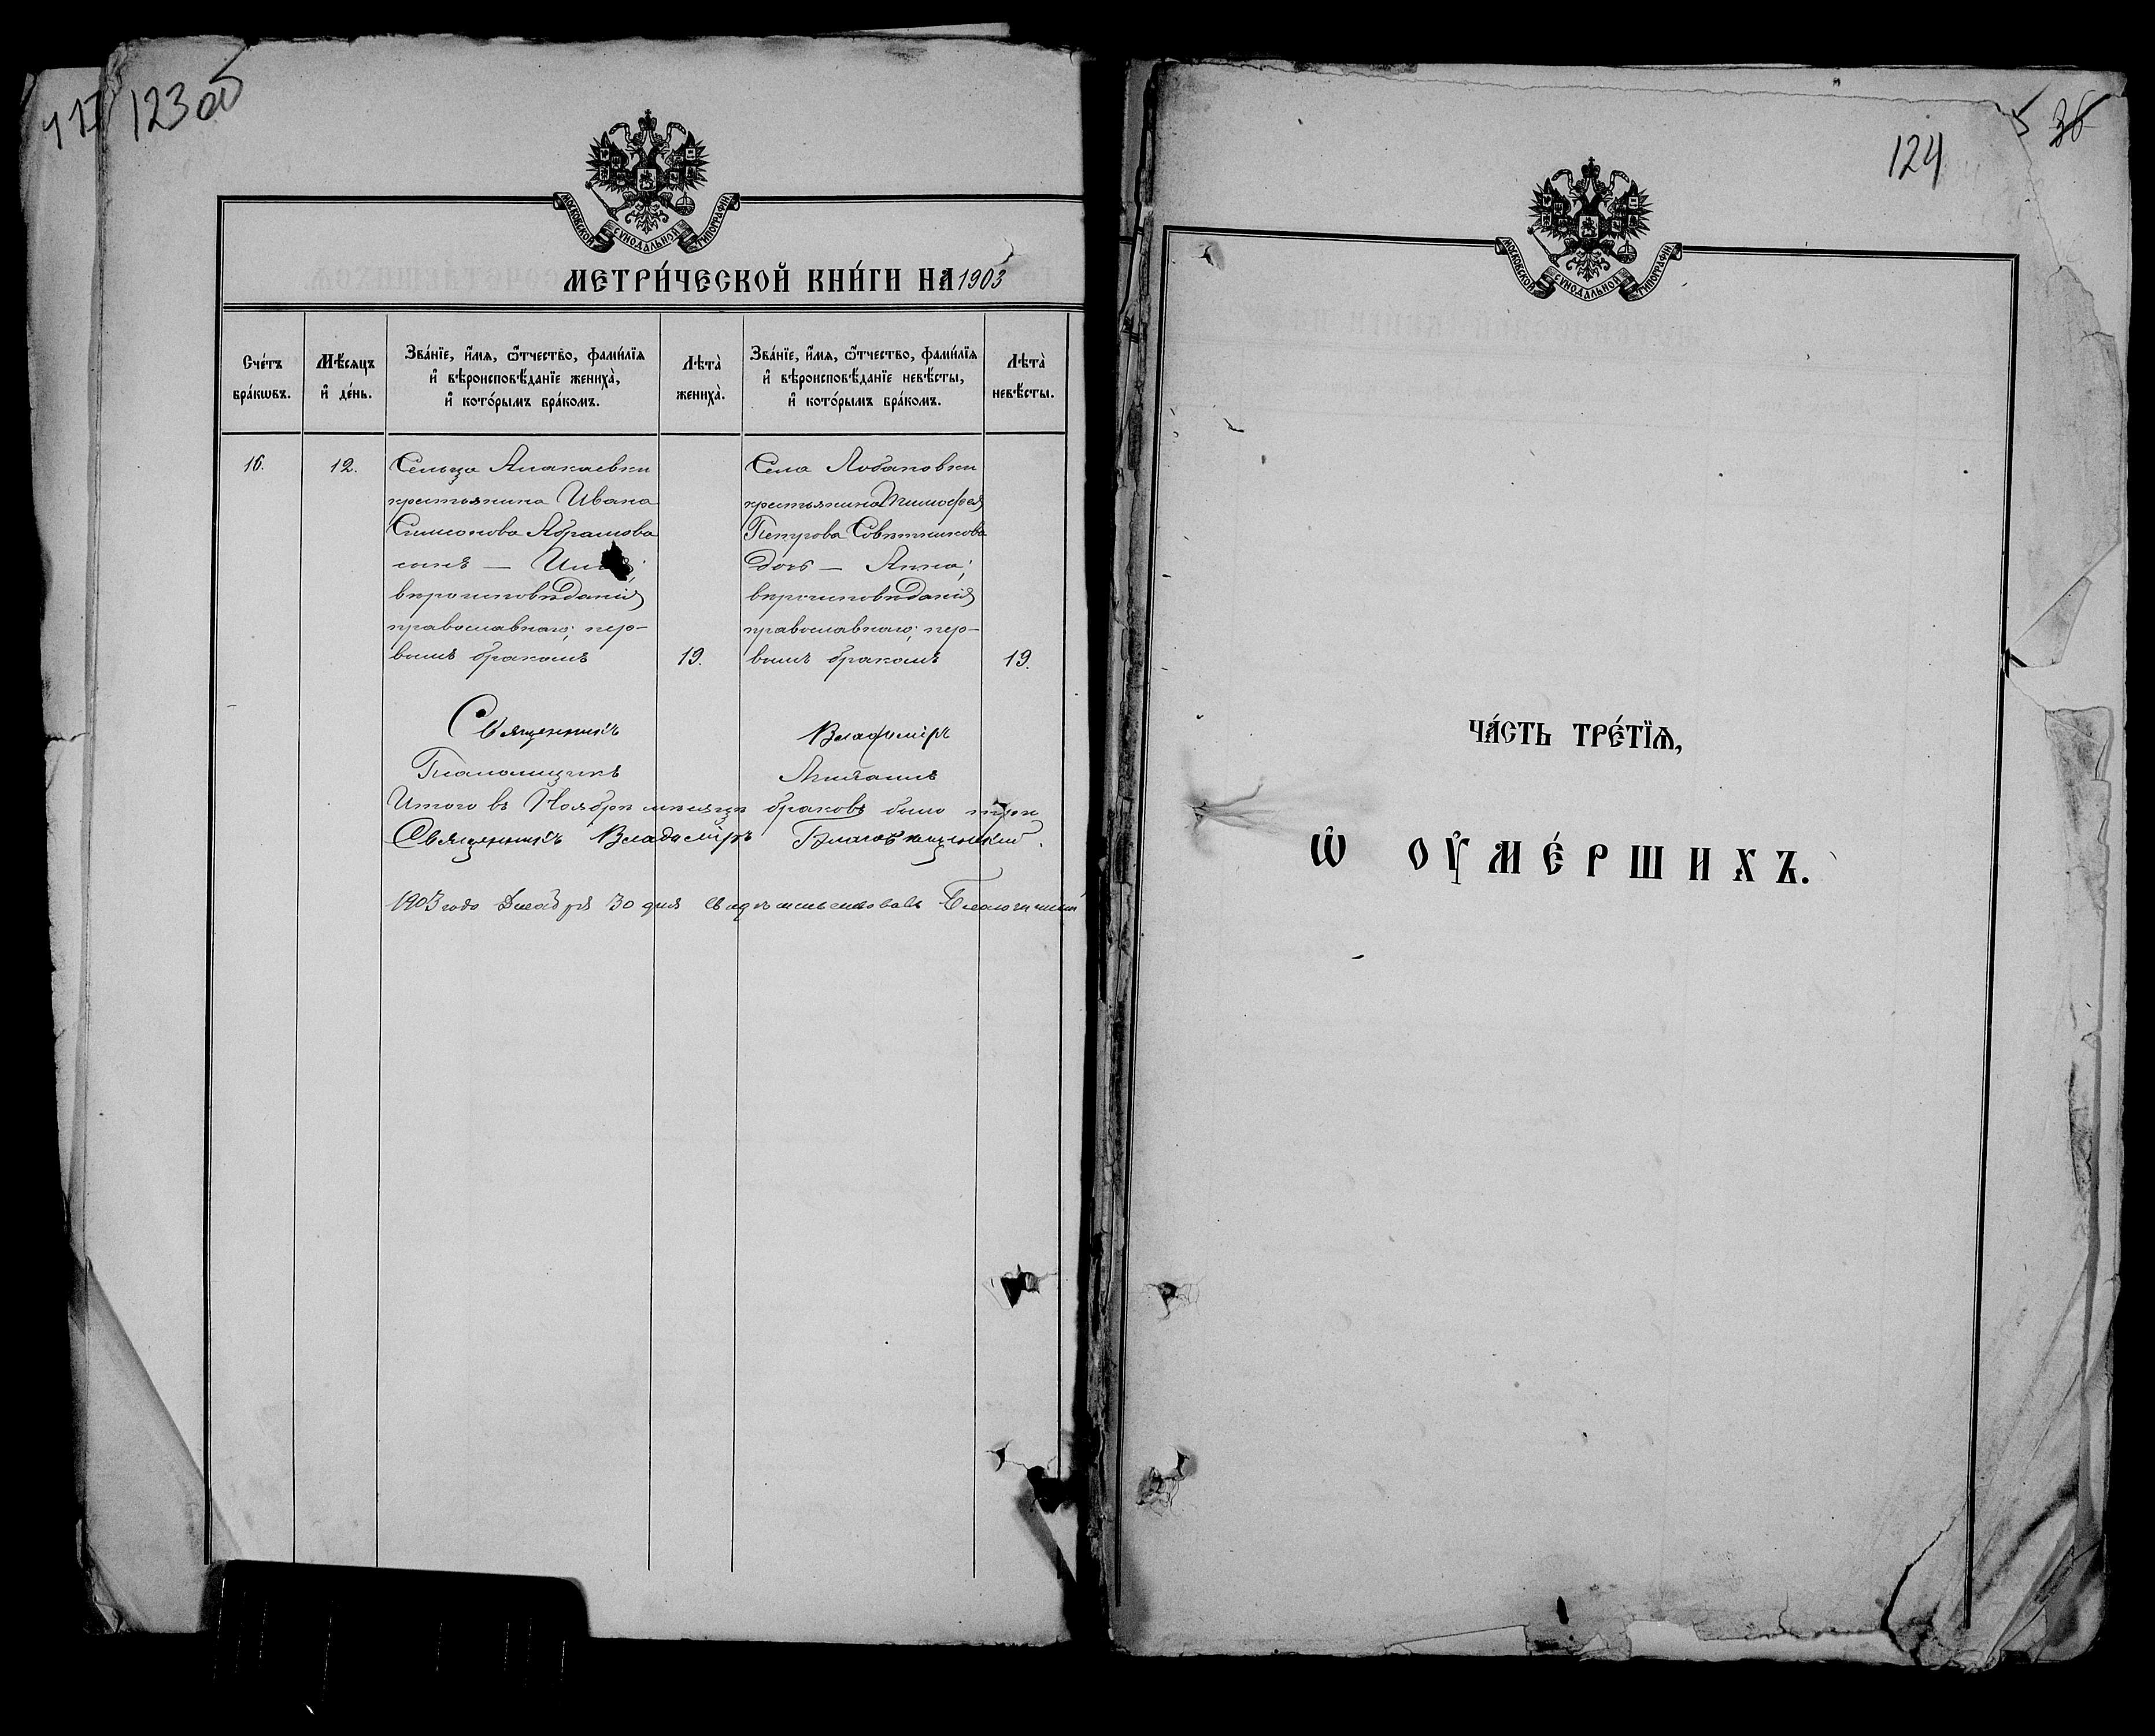 123 об
МОСКОВСКОЙ СУНОДАЛЬНОЙ ТИПОГРАФІИ
МЕТРИ́ЧЕСКОЙ КНИ́ГИ НА 1903
Сче́тъ бра́кѡвъ.
Мѣ́сяцъ и҆ де́нь.
Зва́нїе, и҆́мѧ, ѻ҆́тчество, фами́лїѧ
и҆ вѣроисповѣ́данїе жениха̀,
и҆ кото́рымъ бра́комъ.
Лѣта̀ жениха̀.
Зва́нїе, и҆́мѧ, ѻ҆́тчество, фами́лїѧ
и҆ вѣроисповѣ́данїе невѣ́сты,
и҆ кото́рымъ бра́комъ.
Лѣта̀ невѣ́сты.
16.
12.
Сельца
крестьянина Ивана
Симонова Абрамова
сынъ —
вѣроисповѣданія
православнаго; пер-
вымъ бракомъ
19.
Села Лобановки
крестьянина Тимофея
Петрова Совѣтникова
дочь — Анна;
вѣроисповѣданія
православнаго; пер-
вымъ бракомъ
19.
Священникъ Владиміръ
Псаломщикъ
Итого въ Ноябрѣ мѣсяцѣ браковъ было три
Священникъ Владиміръ Благовѣщенскій.
1903 года Декабря 30 дня свидѣтельствовалъ Благочинный
124
36
МОСКОВСКОЙ СУНОДАЛЬНОЙ ТИПОГРАФІИ
ЧА́СТЬ ТРЕ́ТЇѦ,
Ѡ҆ ОУ҆МЕ́РШИХЪ.